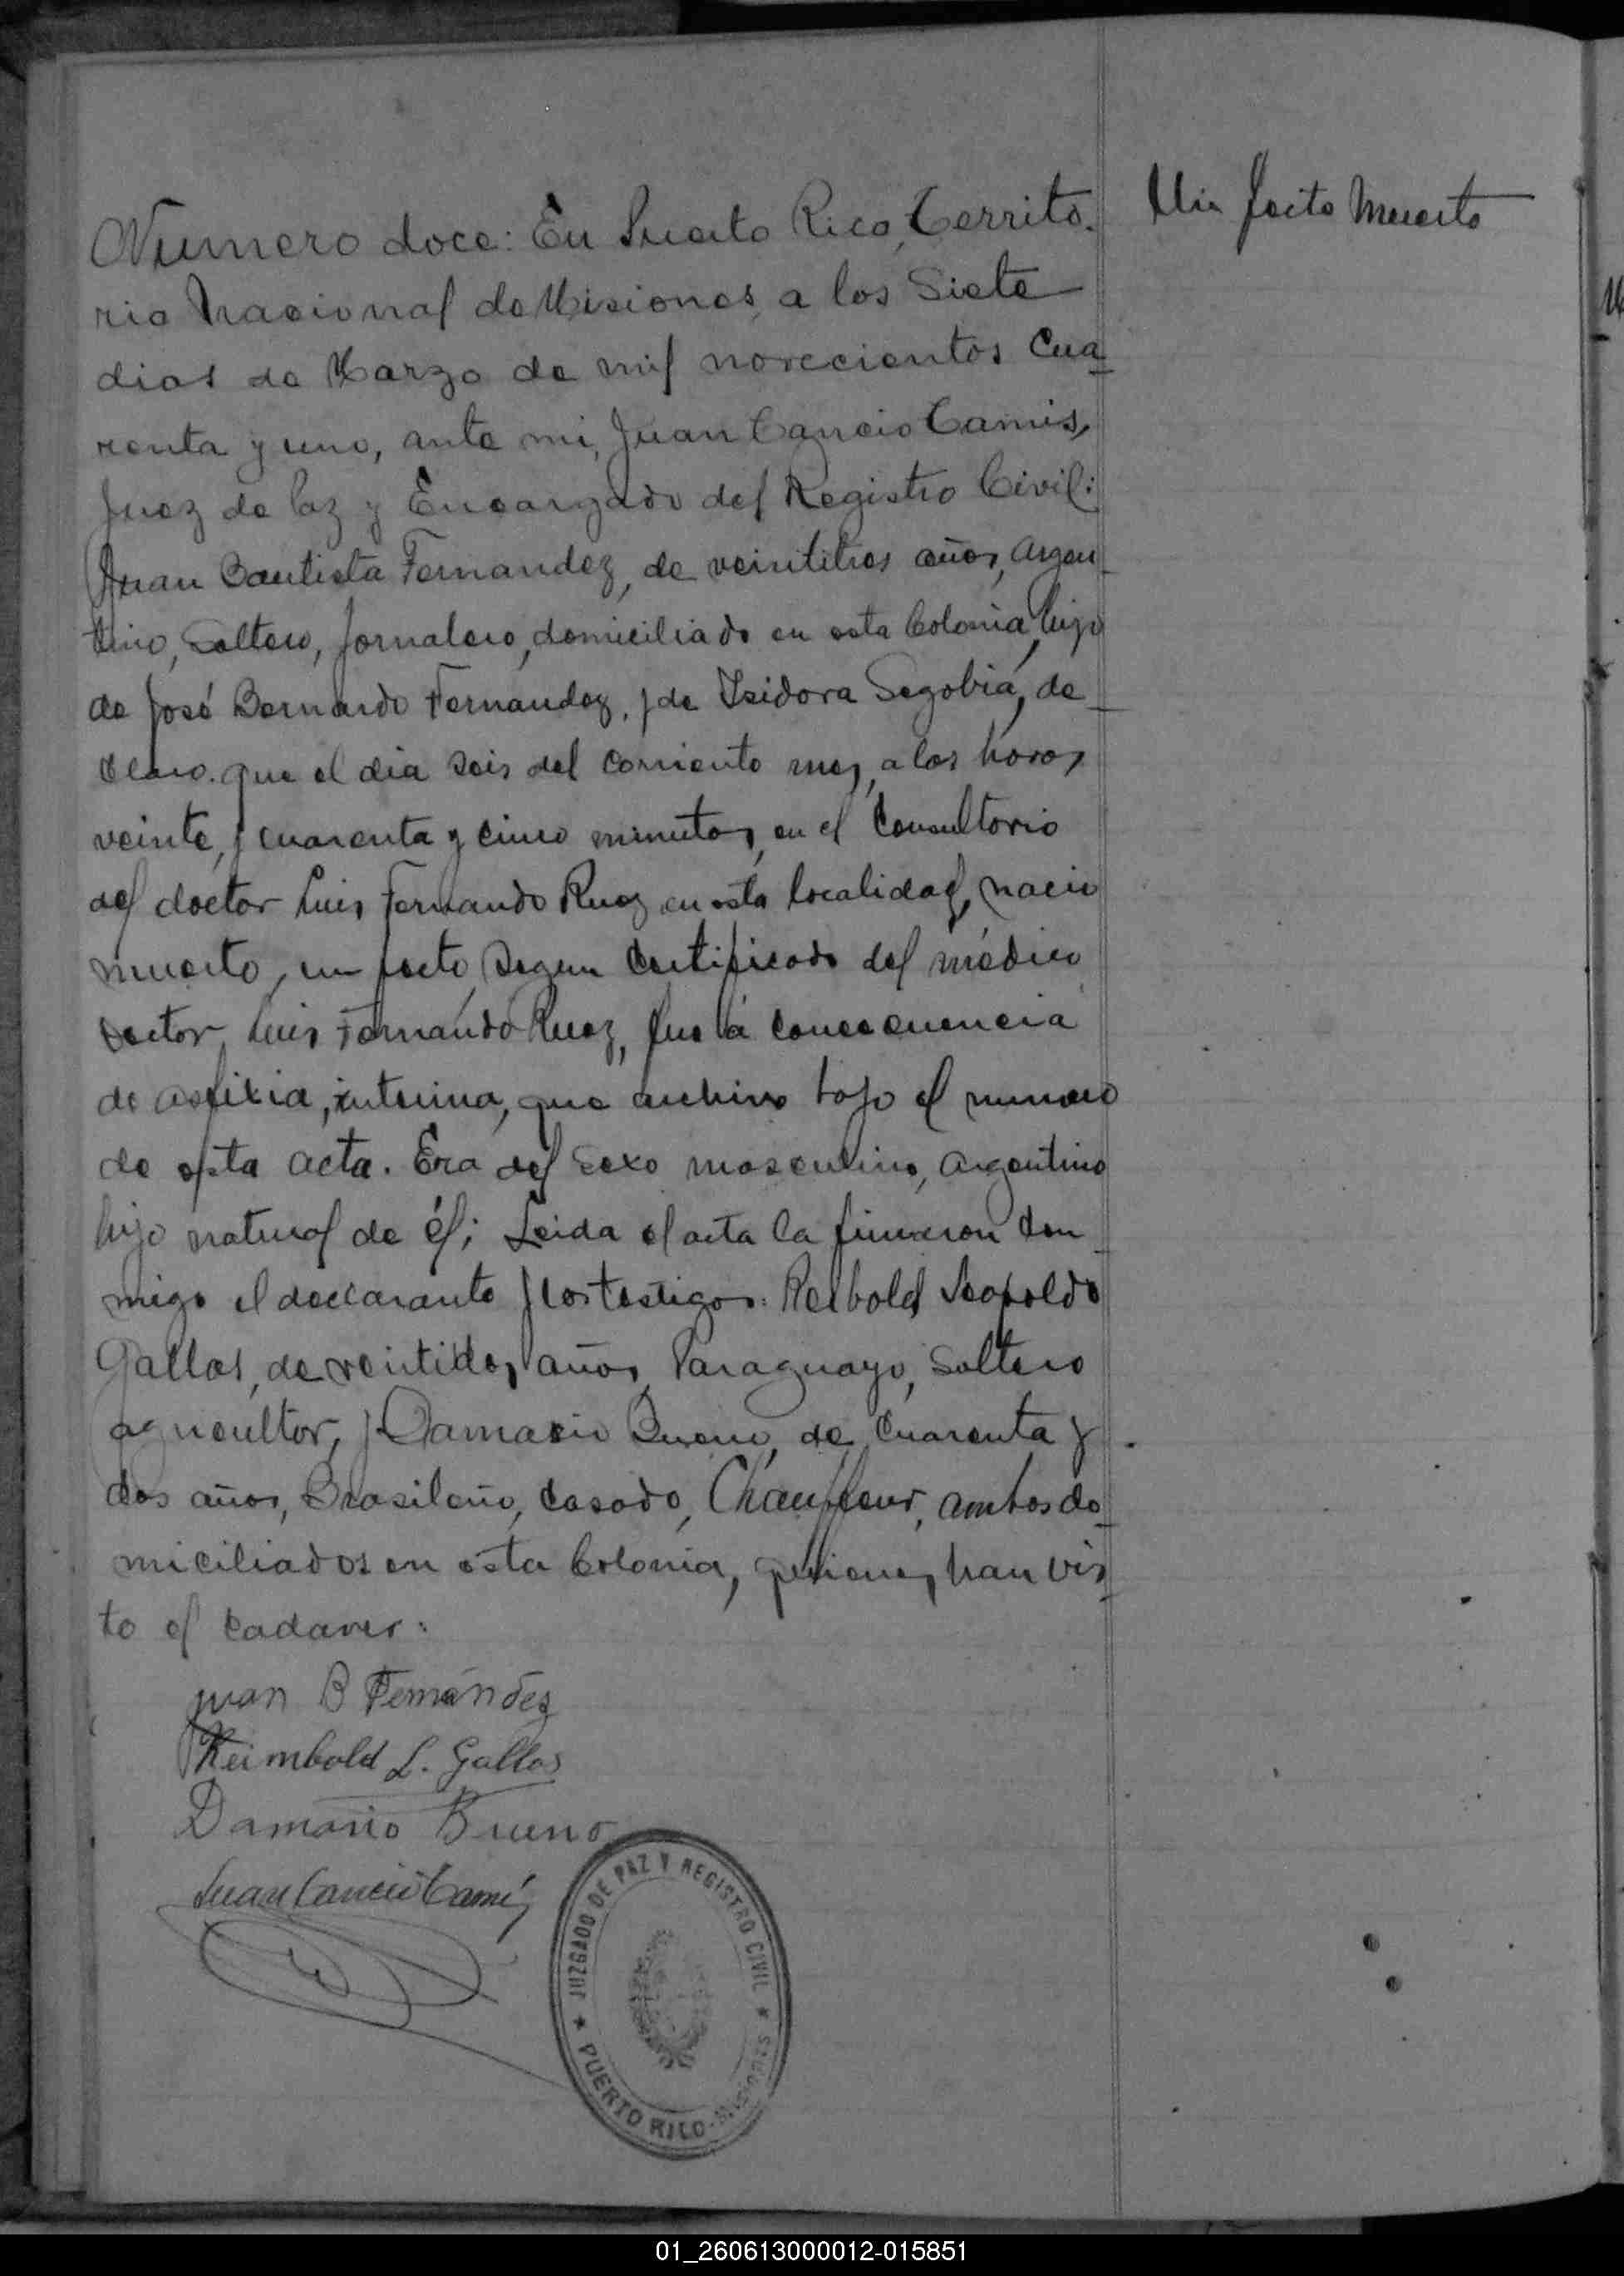 Un feito Muerto
Numero doce: En Puerto Rico, Territo-
rio Nacional de Misiones, a los Siete
dias de Marzo de mil novecientos Cua-
renta y uno, ante mi, Juan Cancio Camis,
Juez de Paz y Encargado del Registro Civil:
Juan Bautista Fernandez, de veintitres años, argen-
tino, Soltero, Jornalero, domiciliado en esta Colonia, hijo
de José Bernardo Fernandez, y de Isidora Segobia, de-
claro. que el dia seis del corriente mes, a las horas
veinte, y cuarenta y cinco minutos, en el Consultorio
del doctor Luis Fernando Ruez en esta localidad, nacio
muerto, un feeto, segun Certificado del médico
doctor, Luis Fernando Ruez, fue a concecuencia
de asfixia, interina, que archivo bajo el numero
de esta acta. Era del sexo masculino, argentino
hijo natural de él; Leida el acta la firmaron Con-
migo el declarante y los testigos: Reibold Leopoldo
Gallas, de veintidos años, Paraguayo, Soltero
agricultor, y Damacio Bueno, de Cuarenta y
dos años, Brasileño, Casado, Chauffeur, ambos do-
miciliados en esta Colonia, quienes han vis-
to el cadaver:
Juan B Fernández
Reimbold L. Gallas
Damasio Bueno
Juan Cancio Camis
JUZGADO DE PAZ Y REGISTRO CIVIL
PUERTO RICO-MISIONES
01_260613000012-015851